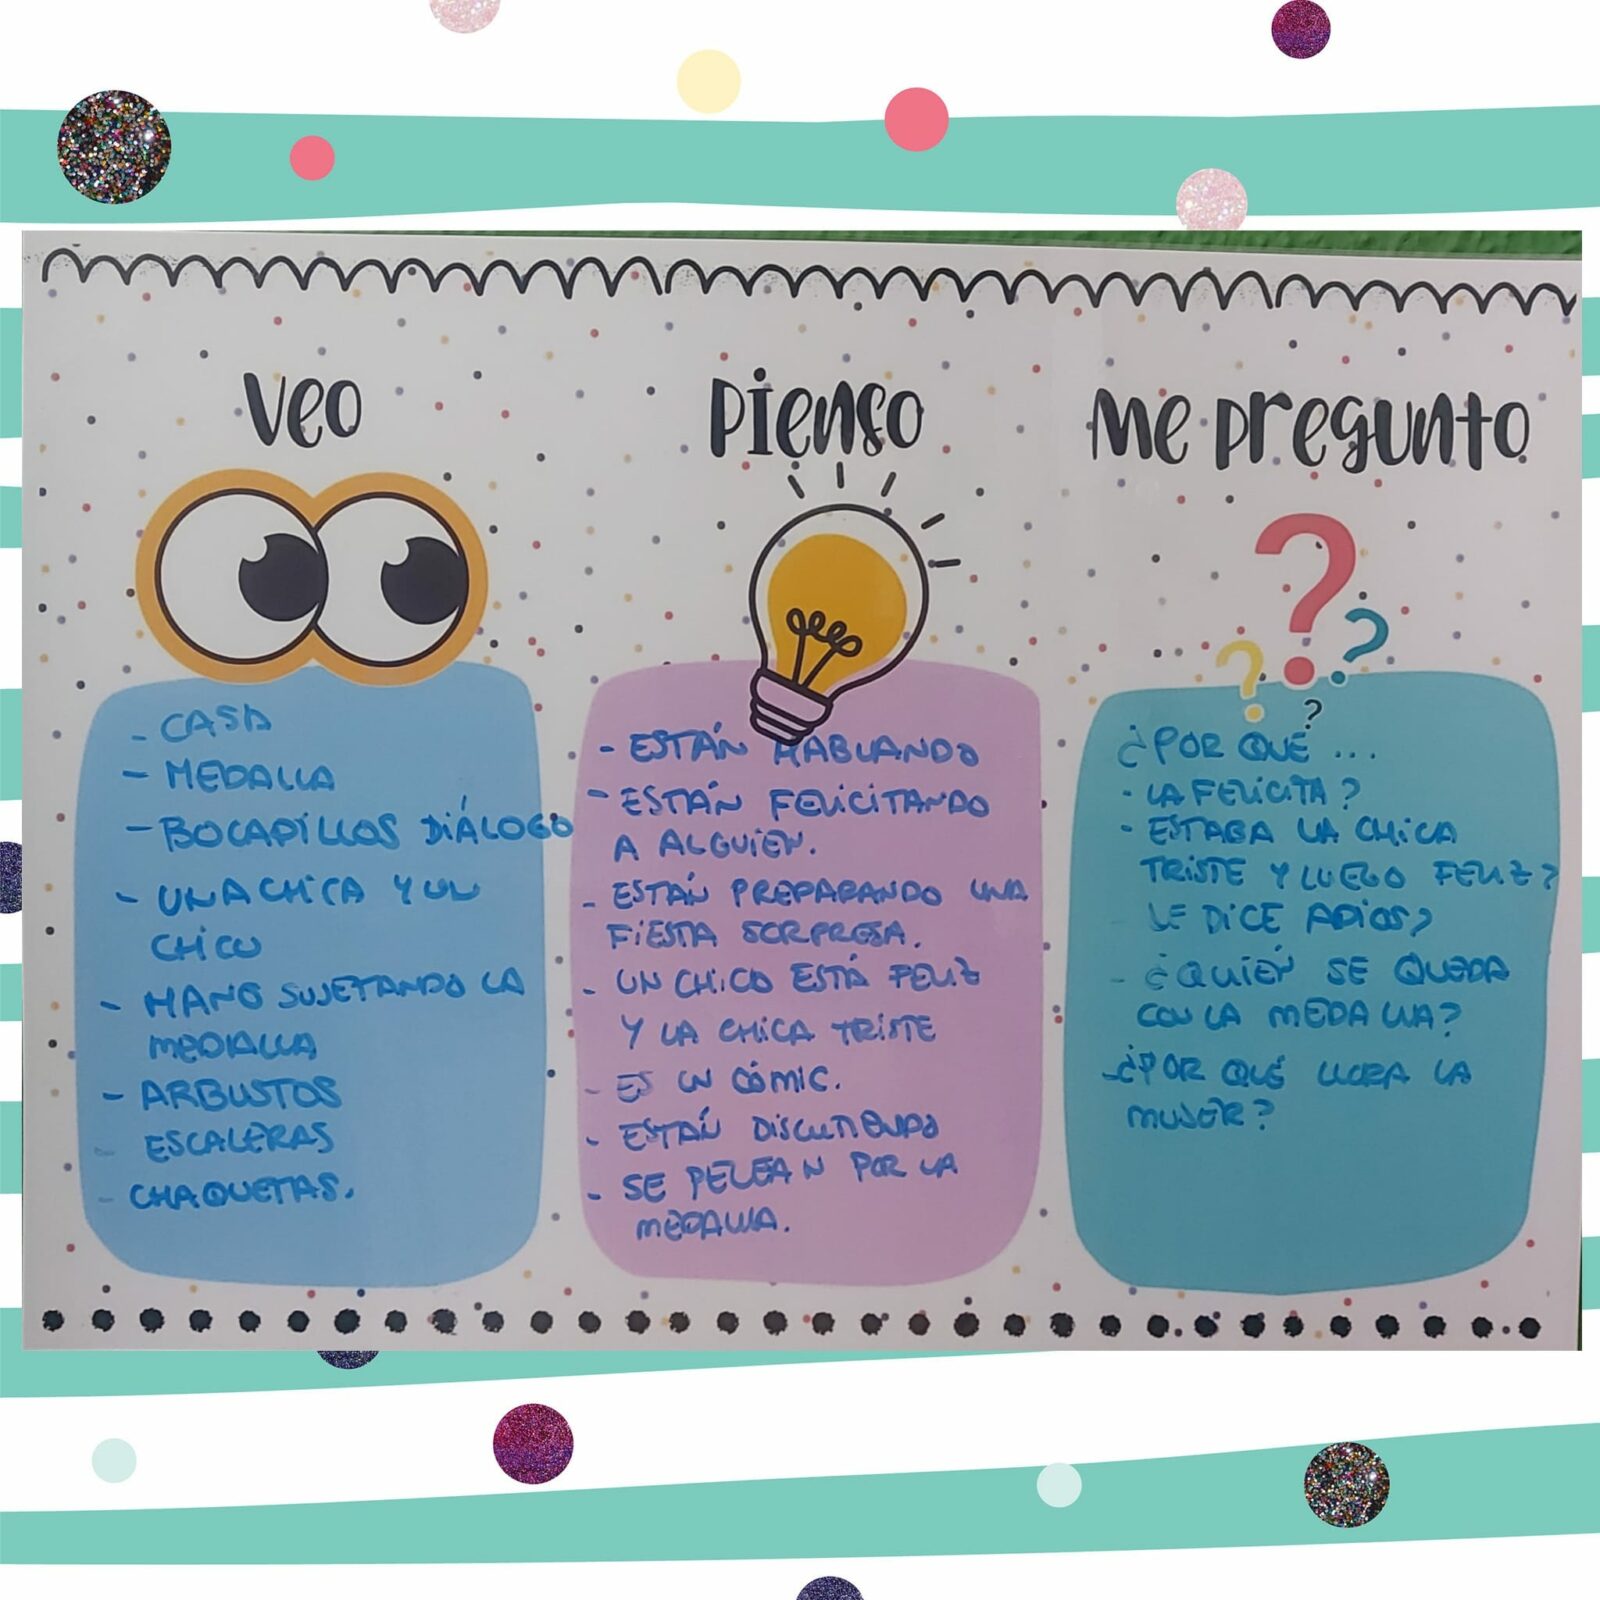 veo
- CASA
- MEDALLA
- BOCADILLOS DIÁLOGO
- UNA CHICA Y UN
CHICO
- MANO SUJETANDO LA
MEDALLA
- ARBUSTOS
- ESCALERAS
- CHAQUETAS.
pienso
- ESTÁN HABLANDO
- ESTÁN FELICITANDO
A ALGUIEN.
- ESTÁN PREPARANDO UNA
FIESTA SORPRESA.
- UN CHICO ESTÁ FELIZ
Y LA CHICA TRISTE
- ES UN CÓMIC.
- ESTÁN DISCUTIENDO
- SE PELEAN POR LA
MEDALLA.
me pregunto
? ? ? ?
¿POR QUÉ ...
- LA FELICITA?
- ESTABA LA CHICA
TRISTE Y LUEGO FELIZ?
- LE DICE ADIOS?
- ¿QUIÉN SE QUEDA
CON LA MEDALLA?
- ¿POR QUÉ LLORA LA
MUJER?